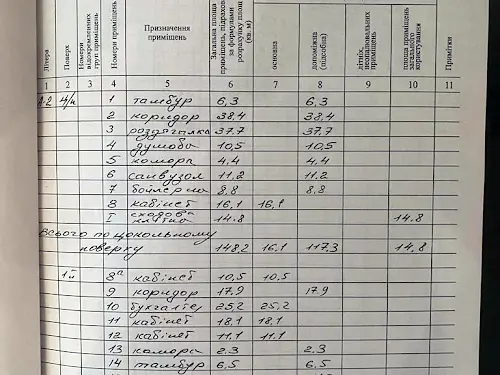 Літера
Поверх
Номери відокремлених груп приміщень
Номери приміщень
Призначення приміщень
Загальна площа приміщень, підрахована за формулами розрахунку площ (кв. м)
основна
допоміжна (підсобна)
літніх, неопалювальних приміщень
площа приміщень загального користування
Примітки
1 2 3 4 5 6 7 8 9 10 11
А-2 ц/п 1 тамбур 6,3 6,3
2 коридор 38,4 38,4
3 роздягалка 37.7 37.7
4 душова 10,5 10,5
5 комора 4.4 4.4
6 санвузол 11.2 11.2
7 бойлерна 8,8 8.8
8 кабінет 16,1 16,1
I сходова клітка 14.8 14.8
Всього по цокольному
поверху 148,2 16,1 117,3 14,8
1й 8а кабінет 10,5 10,5
9 коридор 17,9 17,9
10 бухгалтер 25,2 25,2
11 кабінет 18,1 18,1
12 кабінет 11,1 11,1
13 комора 2.3 2.3
14 тамбур 6,5 6,5